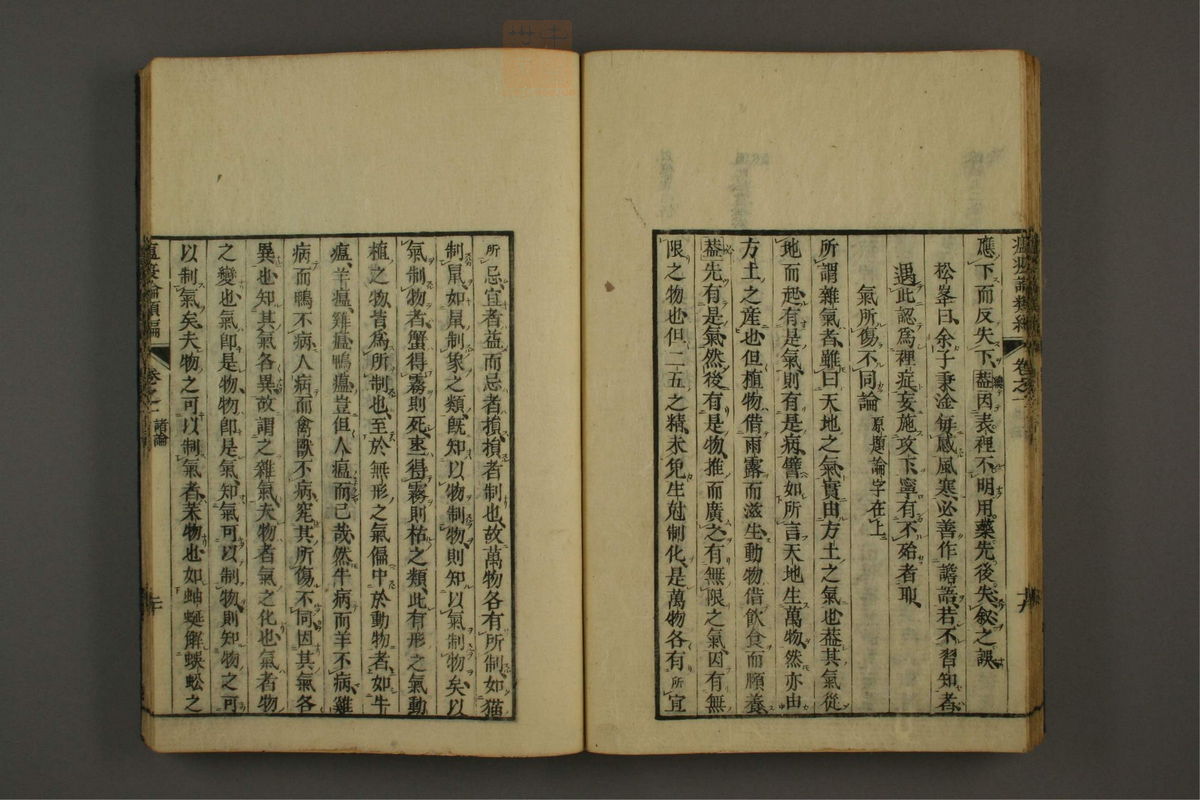 應下而反失下蓋因表裡不明用藥先後失敘之誤
松峯曰余子秉淦每感風寒必善作譫語若不習知者
遇此認爲裡症妄施攻下寧有不殆者耶
氣所傷不同論 原題論字在上
所謂雜氣者雖曰天地之氣實由方土之氣也蓋其氣從
地而起有是氣則有是病譬如所言天地生萬物然亦由
方土之產也但植物借雨露而滋生動物借飲食而頤養
蓋先有是氣然後有是物推而廣之有無限之氣因有無
限之物也但二五之精未免生尅制化是萬物各有所宜
所忌宜者益而忌者損損者制也故萬物各有所制如猫
制鼠如鼠制象之類既知以物制物則知以氣制物矣以
氣制物者蟹得霧則死棗得霧則枯之類此有形之氣動
植之物皆爲所制也至於無形之氣偏中於動物者如牛
瘟羊瘟雞瘟鴨瘟豈但人瘟而已哉然牛病而羊不病雞
病而鴨不病人病而禽獸不病究其所傷不同因其氣各
異也知其氣各異故謂之雜氣夫物者氣之化也氣者物
之變也氣即是物物即是氣知氣可以制物則知物之可
以制氣矣夫物之可以制氣者藥物也如蚰蜒解蜈蚣之
瘟疫論類編 卷之一 諸論